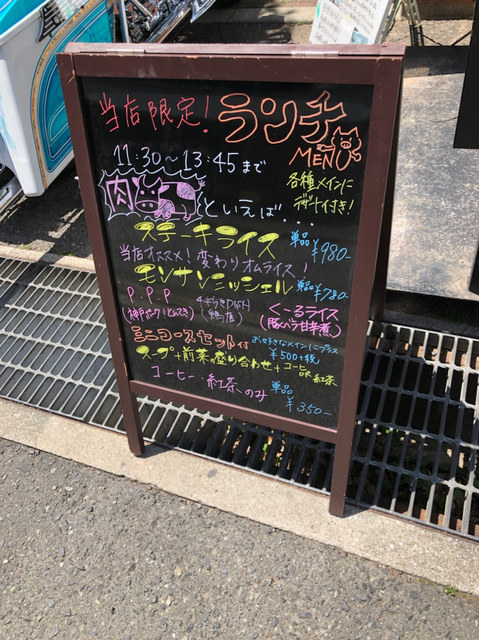 当店限定！ランチ
MENU
11:30～13:45まで
各種メインに
デザート付き!
肉といえば...
ステーキライス 単品 ¥980-
当店オススメ！変わりオムライス！
モンサンミッシェル 単品 ¥780-
P.P.P
(神戸ポークとんてき)
くーるライス
(豚バラ甘辛煮)
ミニコースセット付 お好きなメインにプラス
¥500+税
スープ+前菜の盛り合わせ+コーヒー or 紅茶
コーヒー、紅茶のみ 単品
¥350-